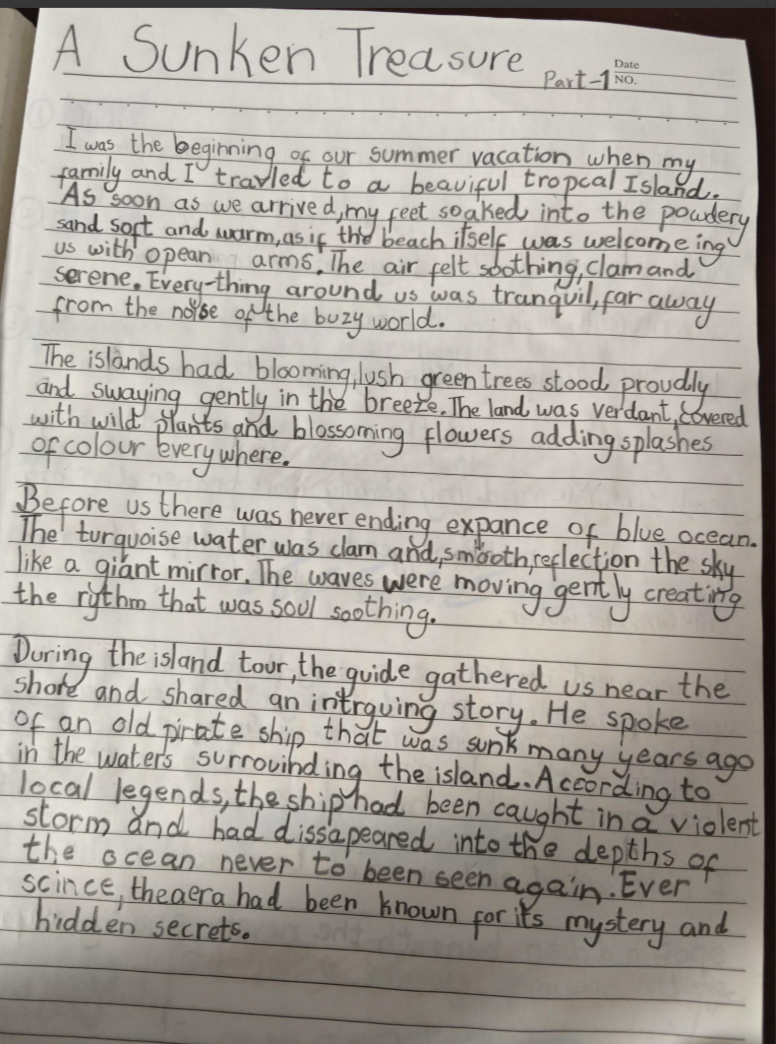 A Sunken Treasure Part-1
Date
NO.
I was the beginning of our summer vacation when my
family and I travled to a beauiful tropcal Island.
As soon as we arrived, my feet soaked into the powdery
sand soft and warm, as if the beach itself was welcome ing
us with opean arms. The air felt soothing, clam and
serene. Every-thing around us was tranquil, far away
from the noise of the buzy world.
The islands had blooming, lush green trees stood proudly
and swaying gently in the breeze. The land was verdant, covered
with wild plants and blossoming flowers adding splashes
of colour everywhere.
Before us there was never ending expance of blue ocean.
The turquoise water was clam and, smooth, reflection the sky
like a giant mirror. The waves were moving gently creating
the rythm that was soul soothing.
During the island tour, the guide gathered us near the
shore and shared an intrguing story. He spoke
of an old pirate ship that was sunk many years ago
in the waters surrouinding the island. According to
local legends, the ship had been caught in a violent
storm and had dissapeared into the depths of
the ocean never to been seen again. Ever
scince, the aera had been known for its mystery and
hidden secrets.